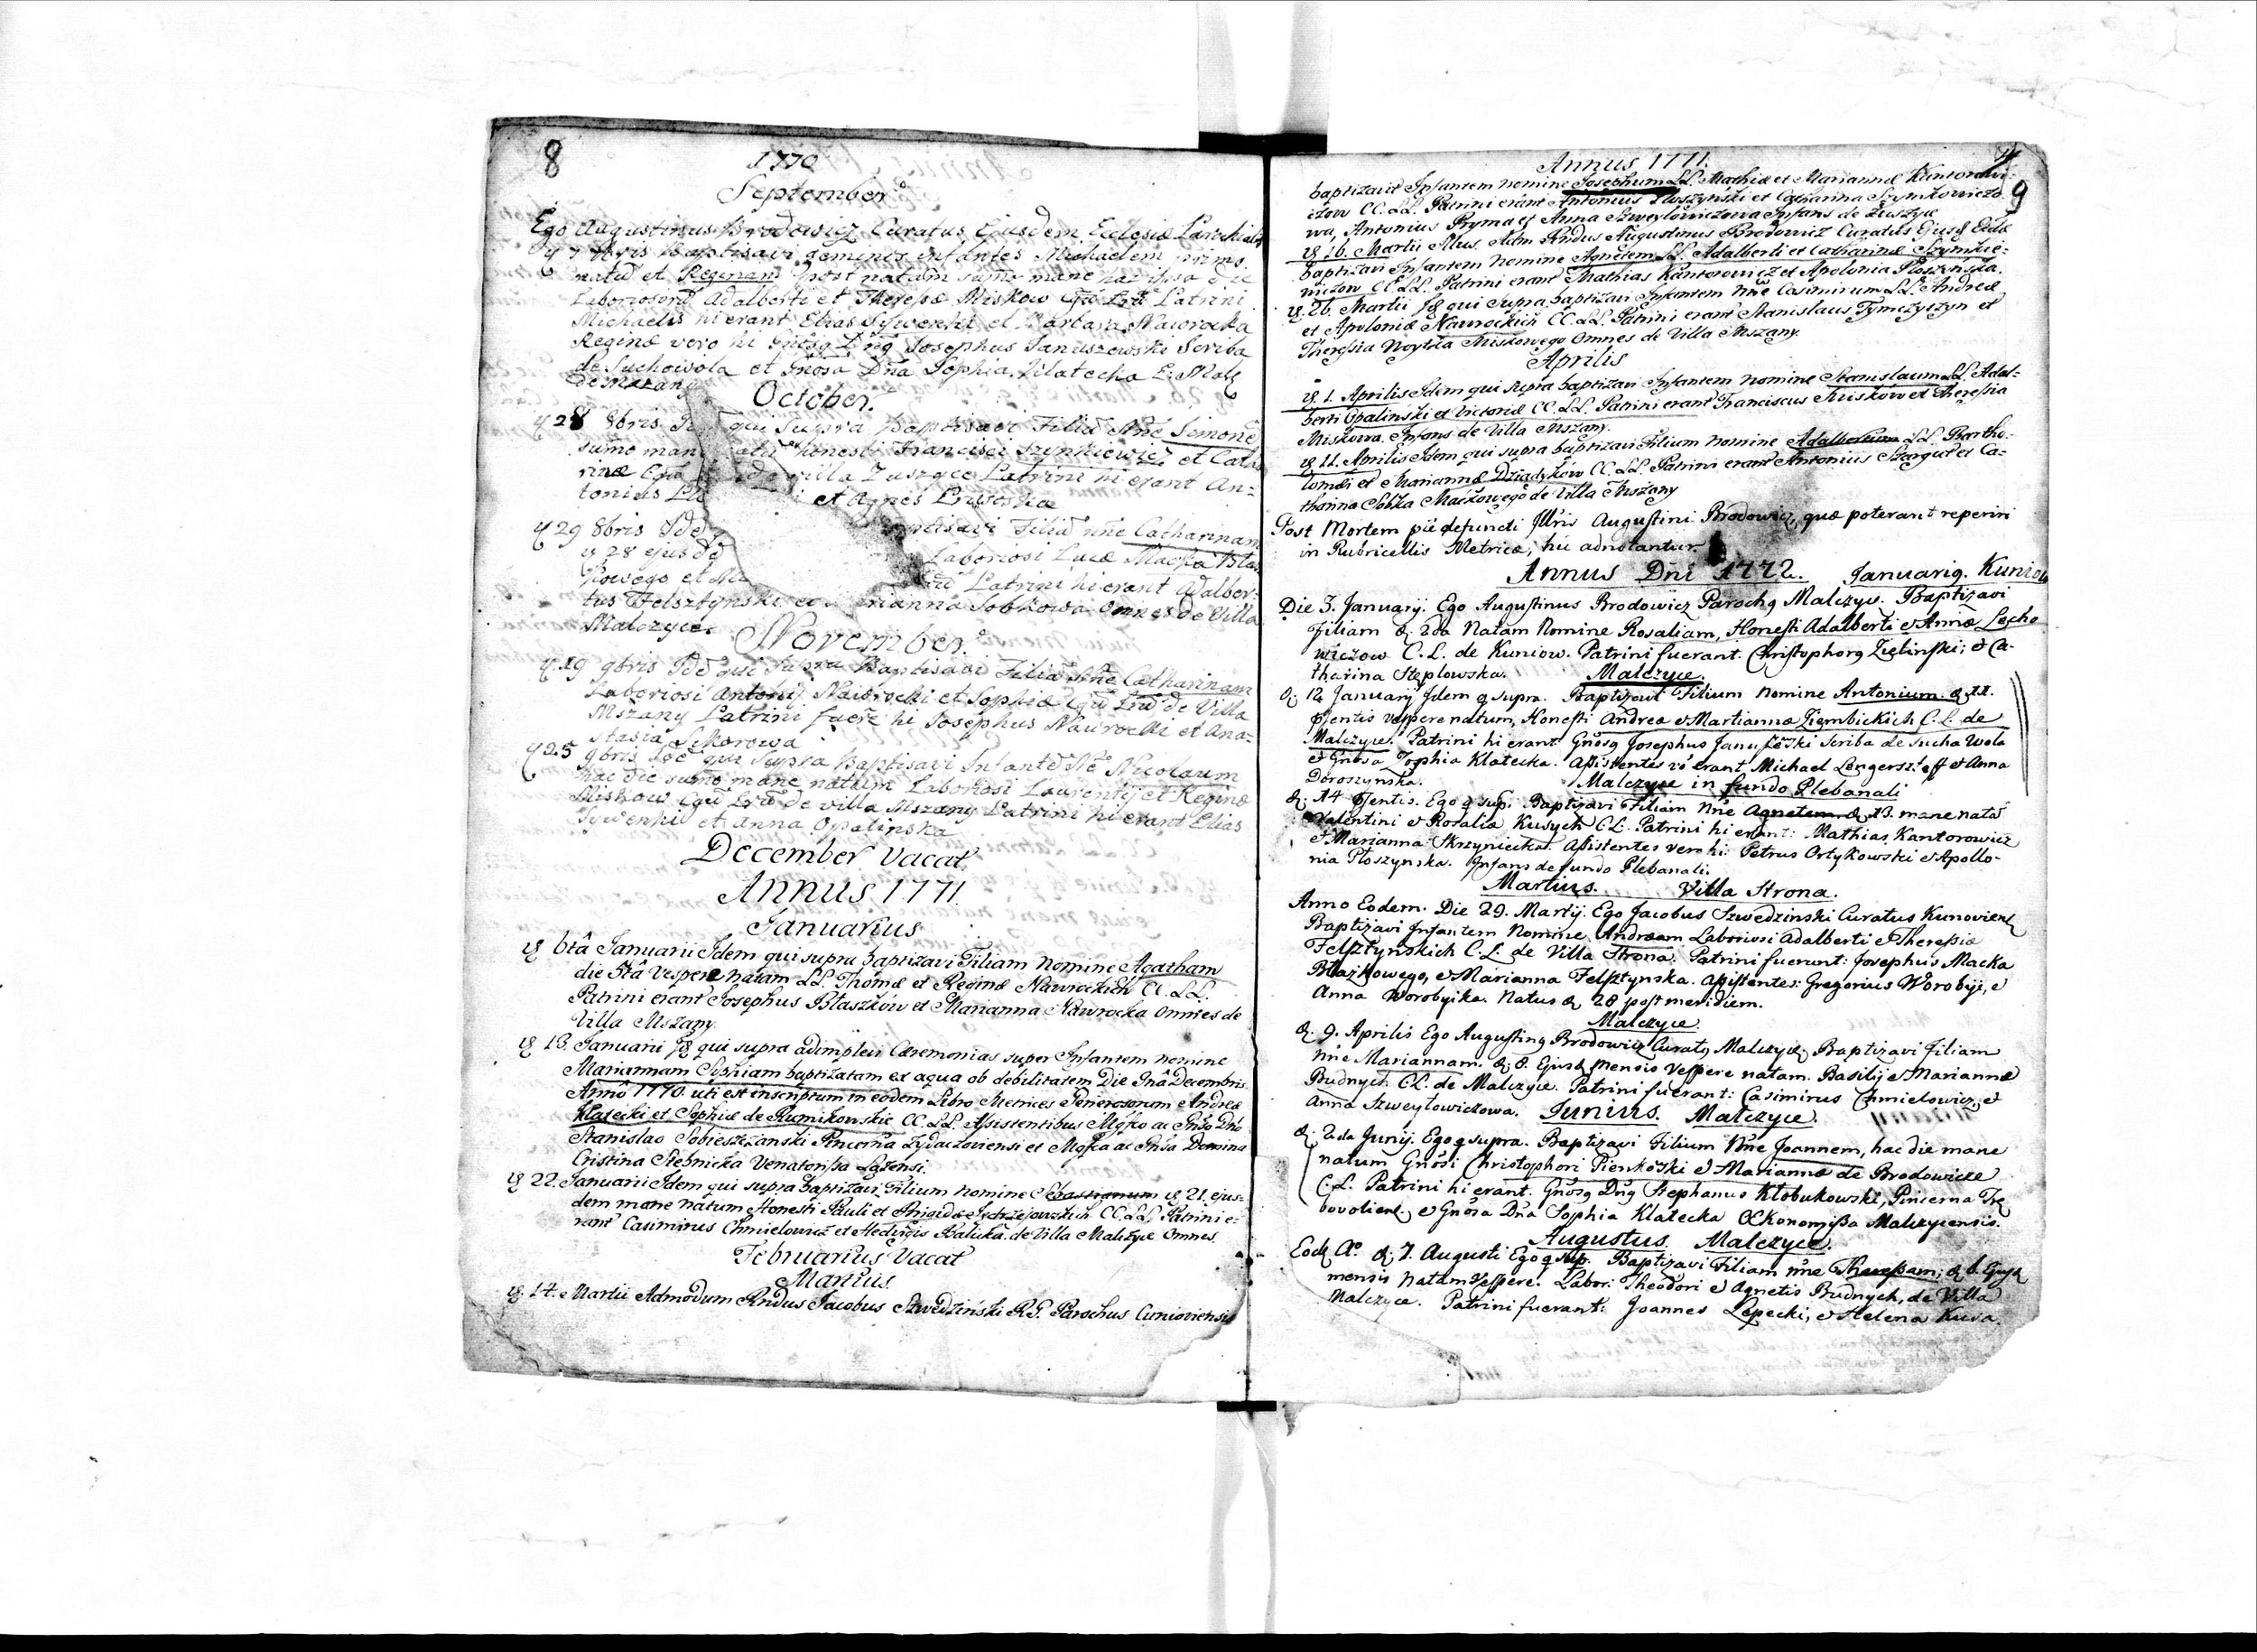 8
1770
September
Ego Augustinus Brodowicz Curatus Ejusdem Ecclesiæ Parochialis
7bris Baptisavi geminos infantes Michaelem primo
natū et Reginam post natam summo mane hac ipsa die
Laboriosorū Adalberti et Theresæ Miskow
Michaelis hi erant Elias Sywenki et Barbara Nawrocka
Reginæ vero hi Josephus Januszewski Scriba
de Suchowola et Gnosa Dna Sophia Klatecka
de Mszany
October.
28 8bris qui supra Baptisavi Filiū Nne Simonē
sumo man natū honesti Francisci Szynkiewicz et Catha
rinæ villa Zuszyce Patrini hi erant An-
tonius et Agnes
29 8bris Idē Baptisavi Filiā nne Catharinam
28 ejusdē Laboriosi Lucæ Macka Bla
kowego et Patrini hi erant Adalber-
tus Felsztynski et Marianna Sobkowa omnes de Villa
Malczyce.
November.
19 9bris Idē qui supra Baptisavi Filiā Nne Catharinam
Laboriosi Antonij Nawrocki et Sophiæ de Villa
Mszany Patrini fuere hi Josephus Nawrocki et Ana-
stasia Sikorowa
25 9bris Idē qui supra Baptisavi Infantē Nē Nicolaum
hac die sumo mane natum Laboriosi Laurentij et Reginæ
Miskow de villa Mszany Patrini hi erant Elias
Sywenki et Anna Opalinska
December Vacat.
Annus 1771.
Januarius
6tâ Januarii Idem qui supra baptizavi Filiam nomine Agatham
die 5tâ Vespere natam LL. Thomæ et Reginæ Nawrockich CC. LL.
Patrini erant Josephus Błaszków et Marianna Nawrocka omnes de
Villa Mszany.
13. Januarii qui supra adimplevi Cæremonias super Infantem nomine
Mariannam baptizatam ex aqua ob debilitatem Die Decembris
Anno 1770. uti est inscriptum in eodem Libro Metrices Generosorum Andreæ
Klatecki et Sophiæ de CC. LL. Assistentibus Mgfco ac
Stanislao Sobieszczanski Pincerna Zydaczoviensi et Mgfca ac Domina
Cristina Stebnicka Venatorissa
22. Januarii Idem qui supra baptizavi Filium nomine Sebastianum 21. ejus-
dem mane natum Honesti Pauli et Brigidæ CC. LL. Patrini e-
rant Casimirus Chmielowicz et Hedvigis Bałuka de Villa Malczyce Omnes.
Februarius Vacat
Martius.
14. Martii Admodum Rndus Jacobus Szwedziński R.G. Parochus Cunioviensis
9
Annus 1771.
baptizavit Infantem nomine Josephum LL. Mathiæ et Mariannæ Kantorowi-
czow CC. LL. Patrini erant Antonius Płoszyński et Catharina Szymkowiczo
wa, Antonius Pryma et Anna Szweyłowiczowa Infans de Zuszyce
16. Martii Adm Rndus Augustinus Brodowicz Curatus
baptizavi Infantem nomine Agnetem LL. Adalberti et Catharinæ Szymkie-
wiczow CC. LL. Patrini erant Mathias Kantorowicz et Apolonia Płoszynska.
26. Martii qui supra baptizavi Infantem Nne Casimirum LL. Andreæ
et Apoloniæ Nawrockich CC. LL. Patrini erant Stanislaus Tymczyszyn et
Theressia Woytka Miskowego Omnes de Villa Mszany.
Aprilis
1. Aprilis Idem qui supra baptizavi Infantem nomine Stanislaum LL. Adal-
berti Opalinski et Victoriæ CC. LL. Patrini erant Franciscus Misków et Theressia
Miskowa. Infans de Villa Mszany.
11. Aprilis Idem qui supra baptizavi Filium nomine Adalbertum LL. Bartho-
lomæi et Mariannæ Dziadzków CC. LL. Patrini erant Antonius Szargut et Ca-
tharina Sobka Maćkowego de Villa Mszany
Post Mortem pie defuncti Augustini Brodowicz, quæ poterant reperiri
in Rubricellis Metricæ, hic adnotantur.
Annus Dni 1772. Januarig. Kuniow
Die 3. January. Ego Augustinus Brodowicz Parochg Malczyc. Baptizavi
Filiam d. 2da Natam Nomine Rosaliam, Honesti Adalberti et Annæ Lecho
wiczow C. L. de Kuniow. Patrini fuerant. Christophorg Zielinski; et Ca-
tharina Steplowska.
Malczyce.
d. 12 January Idem q supra. Baptizavi Filium Nomine Antonium. d. 11.
psentis vespere natum, Honesti Andreæ et Martiannæ Ziembickich C. L. de
Malczyce. Patrini hi erant Gnosg Josephus Januszeski Scriba de Sucha Wola
et Gnosa Sophia Klatecka. Assistentes vo erant Michael et Anna
Doroszynska.
Malczyce in fundo Plebanali
d. 14 psentis. Ego q sup. Baptizavi Filiam Nne Agnetem d. 13. mane natā
Valentini et Rosaliæ Kusych C. L. Patrini hi erant: Mathias Kantorowicz
et Marianna Skrzyniecka. Assistentes vero hi: Petrus Ortykowski et Apollo-
nia Płoszynska. Infans de fundo Plebanali.
Martius. Villa Strona.
Anno Eodem. Die 29. Martij. Ego Jacobus Szwedzinski Curatus Kunoviens
Baptizavi Infantem Nomine Andream Laboriosi Adalberti et Theressiæ
Felsztynskich C. L. de Villa Strona. Patrini fuerunt: Josephus Macka
Błażkowego, et Marianna Felsztynska. Assistentes: Gregorius Worobij, et
Anna Worobyika. Natus d. 28 post meridiem.
Malczyce.
d. 9. Aprilis Ego Augusting Brodowicz Curatg Malczyc. Baptizavi Filiam
Nne Mariannam. d. 8. mensis Vespere natam. Basilij et Mariannæ
Budnych C. L. de Malczyce. Patrini fuerant: Casimirus Chmielowicz, et
Anna Szweyłowiczowa. Junius. Malczyce.
d. 2da Junij. Ego q supra. Baptizavi Filium Nne Joannem, hac die mane
natum Gnosi Christophori Pienkoski et Mariannæ de Brodowicze
C. L. Patrini hi erant. Gnosg Dng Stephanus Kłobukowski, Pincerna Tre
bovoliens, et Gnosa Dna Sophia Klatecka Œkonomissa Malczycensis.
Augustus. Malczyce.
Eod A° d. 7. Augusti Ego q sup. Baptizavi Filiam nne Theressam; d. 6.
mensis Natam Vespere. Labor. Theodori et Agnetis Budnych, de Villa
Malczyce. Patrini fuerant: Joannes Lepecki, et Helena Kusa.